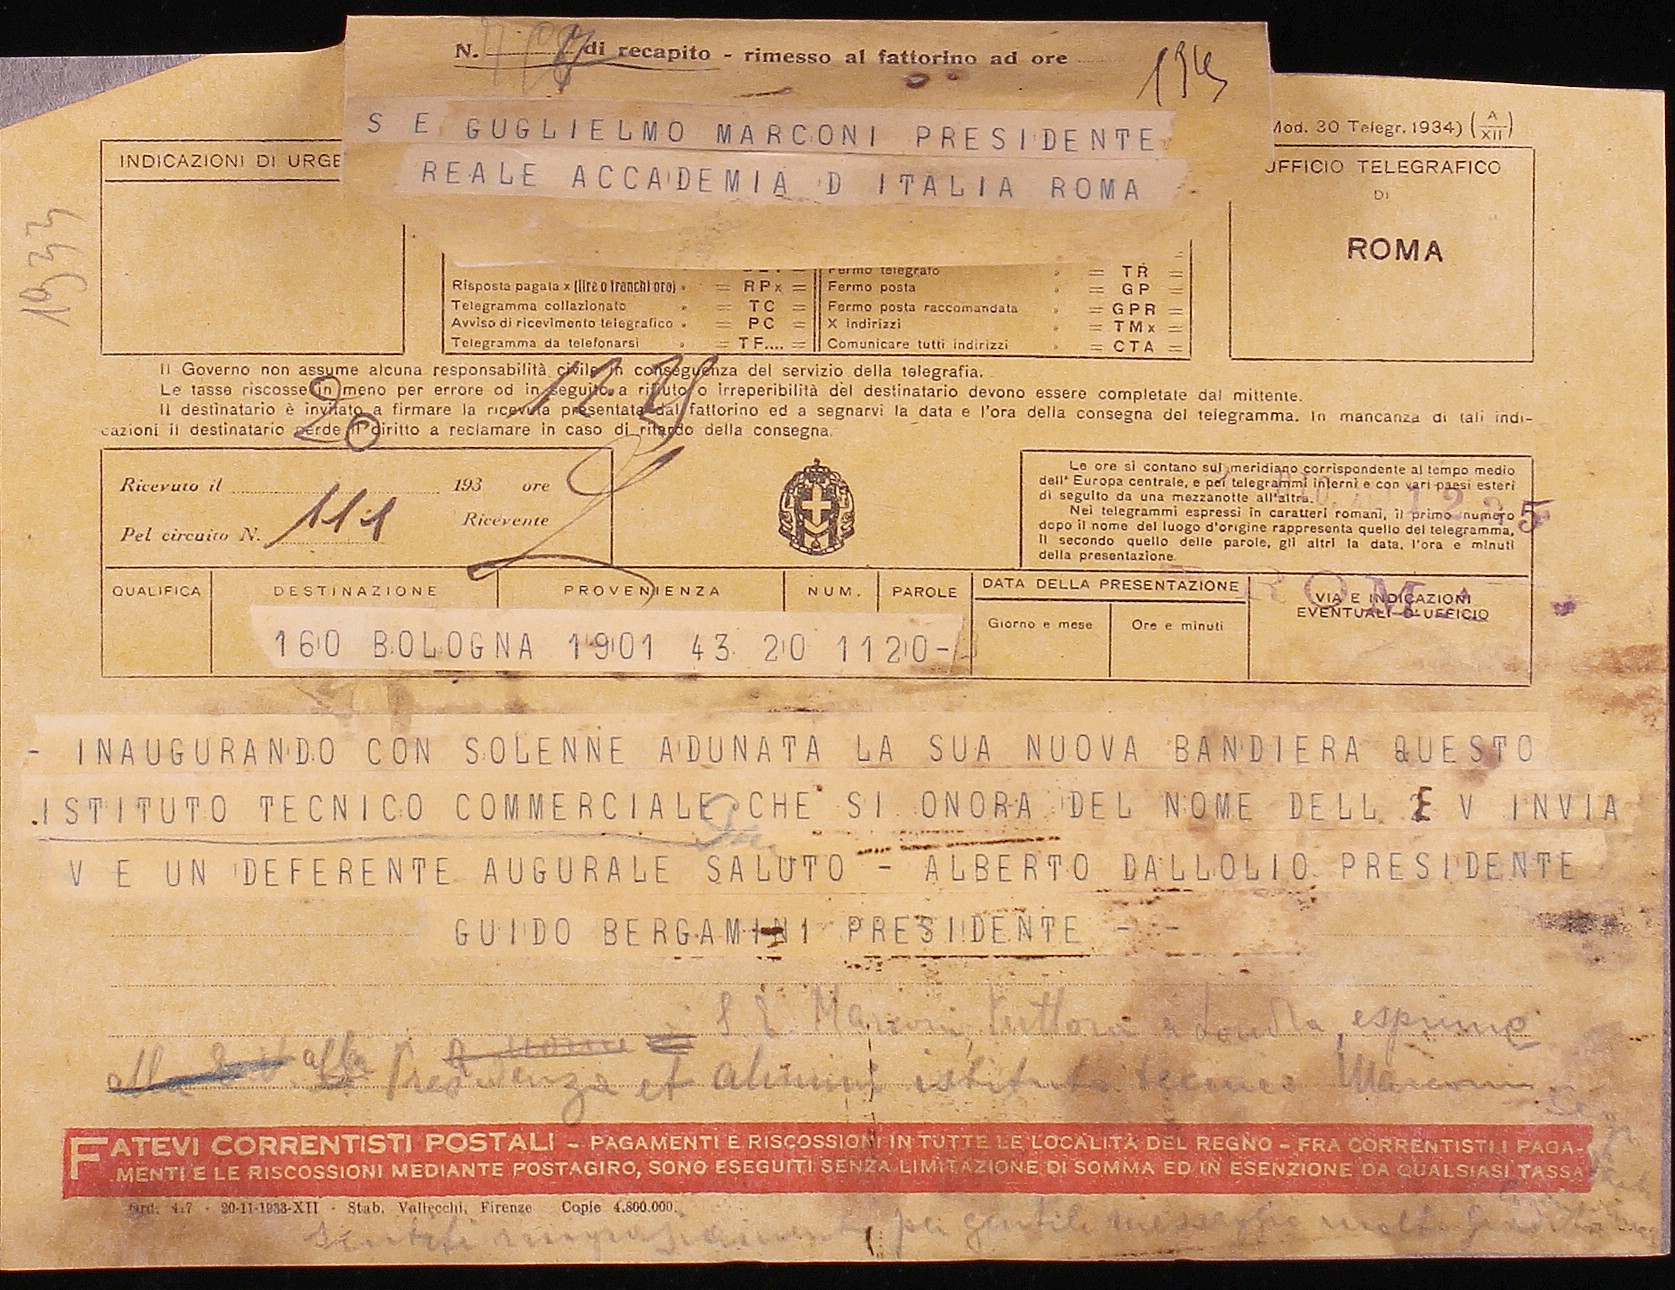 N. di recapito - rimesso al fattorino ad ore
S E GUGLIELMO MARCONI PRESIDENTE
REALE ACCADEMIA D ITALIA ROMA
Mod. 30 Telegr. 1934) (A XII)
INDICAZIONI DI URGE
UFFICIO TELEGRAFICO
DI
ROMA
1933
Fermo telegrafo = TR =
Risposta pagata x (lire o franchi oro) = RPx = Fermo posta = GP =
Telegramma collazionato = TC = Fermo posta raccomandata = GPR =
Avviso di ricevimento telegrafico = PC = X indirizzi = TMx =
Telegramma da telefonarsi = TF.... = Comunicare tutti indirizzi = CTA =
Il Governo non assume alcuna responsabilità civile in conseguenza del servizio della telegrafia.
Le tasse riscosse in meno per errore od in seguito a rifiuto o irreperibilità del destinatario devono essere completate dal mittente.
Il destinatario è invitato a firmare la ricevuta presentata dal fattorino ed a segnarvi la data e l'ora della consegna del telegramma. In mancanza di tali indi-
cazioni il destinatario perde il diritto a reclamare in caso di ritardo della consegna.
Ricevuto il 193 ore
Pel circuito N. 111 Ricevente
Le ore si contano sul meridiano corrispondente al tempo medio
dell'Europa centrale, e pei telegrammi interni e con vari paesi esteri
di seguito da una mezzanotte all'altra.
Nei telegrammi espressi in caratteri romani, il primo numero
dopo il nome del luogo d'origine rappresenta quello del telegramma,
il secondo quello delle parole, gli altri la data, l'ora e minuti
della presentazione.
ROMA
QUALIFICA DESTINAZIONE PROVENIENZA NUM. PAROLE DATA DELLA PRESENTAZIONE VIA E INDICAZIONI
EVENTUALI D'UFFICIO
Giorno e mese Ore e minuti
160 BOLOGNA 1901 43 20 1120-
- INAUGURANDO CON SOLENNE ADUNATA LA SUA NUOVA BANDIERA QUESTO
ISTITUTO TECNICO COMMERCIALE CHE SI ONORA DEL NOME DELL E V INVIA
V E UN DEFERENTE AUGURALE SALUTO - ALBERTO DALLOLIO PRESIDENTE
GUIDO BERGAMINI PRESIDENTE - -
S. E. Marconi, tuttora a Londra, esprime
alla Presidenza et alunni istituto tecnico Marconi
FATEVI CORRENTISTI POSTALI - PAGAMENTI E RISCOSSIONI IN TUTTE LE LOCALITÀ DEL REGNO - FRA CORRENTISTI I PAGA-
MENTI E LE RISCOSSIONI MEDIANTE POSTAGIRO, SONO ESEGUITI SENZA LIMITAZIONE DI SOMMA ED IN ESENZIONE DA QUALSIASI TASSA
Ord. 4.7 - 20-11-1933-XII - Stab. Vallecchi, Firenze Copie 4.800.000.
sentiti ringraziamenti per gentile messaggio molto gradito